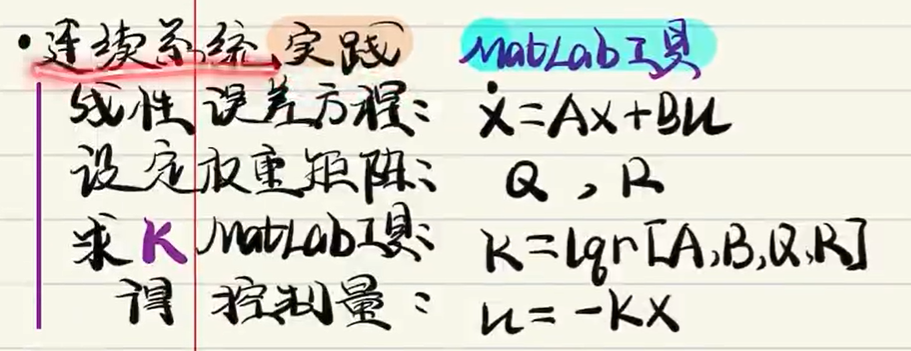 •连续系统实践 MatLab工具
线性误差方程: ẋ=Ax+Bu
设定权重矩阵: Q, R
求K MatLab工具: K=lqr[A,B,Q,R]
得 控制量: u=-Kx